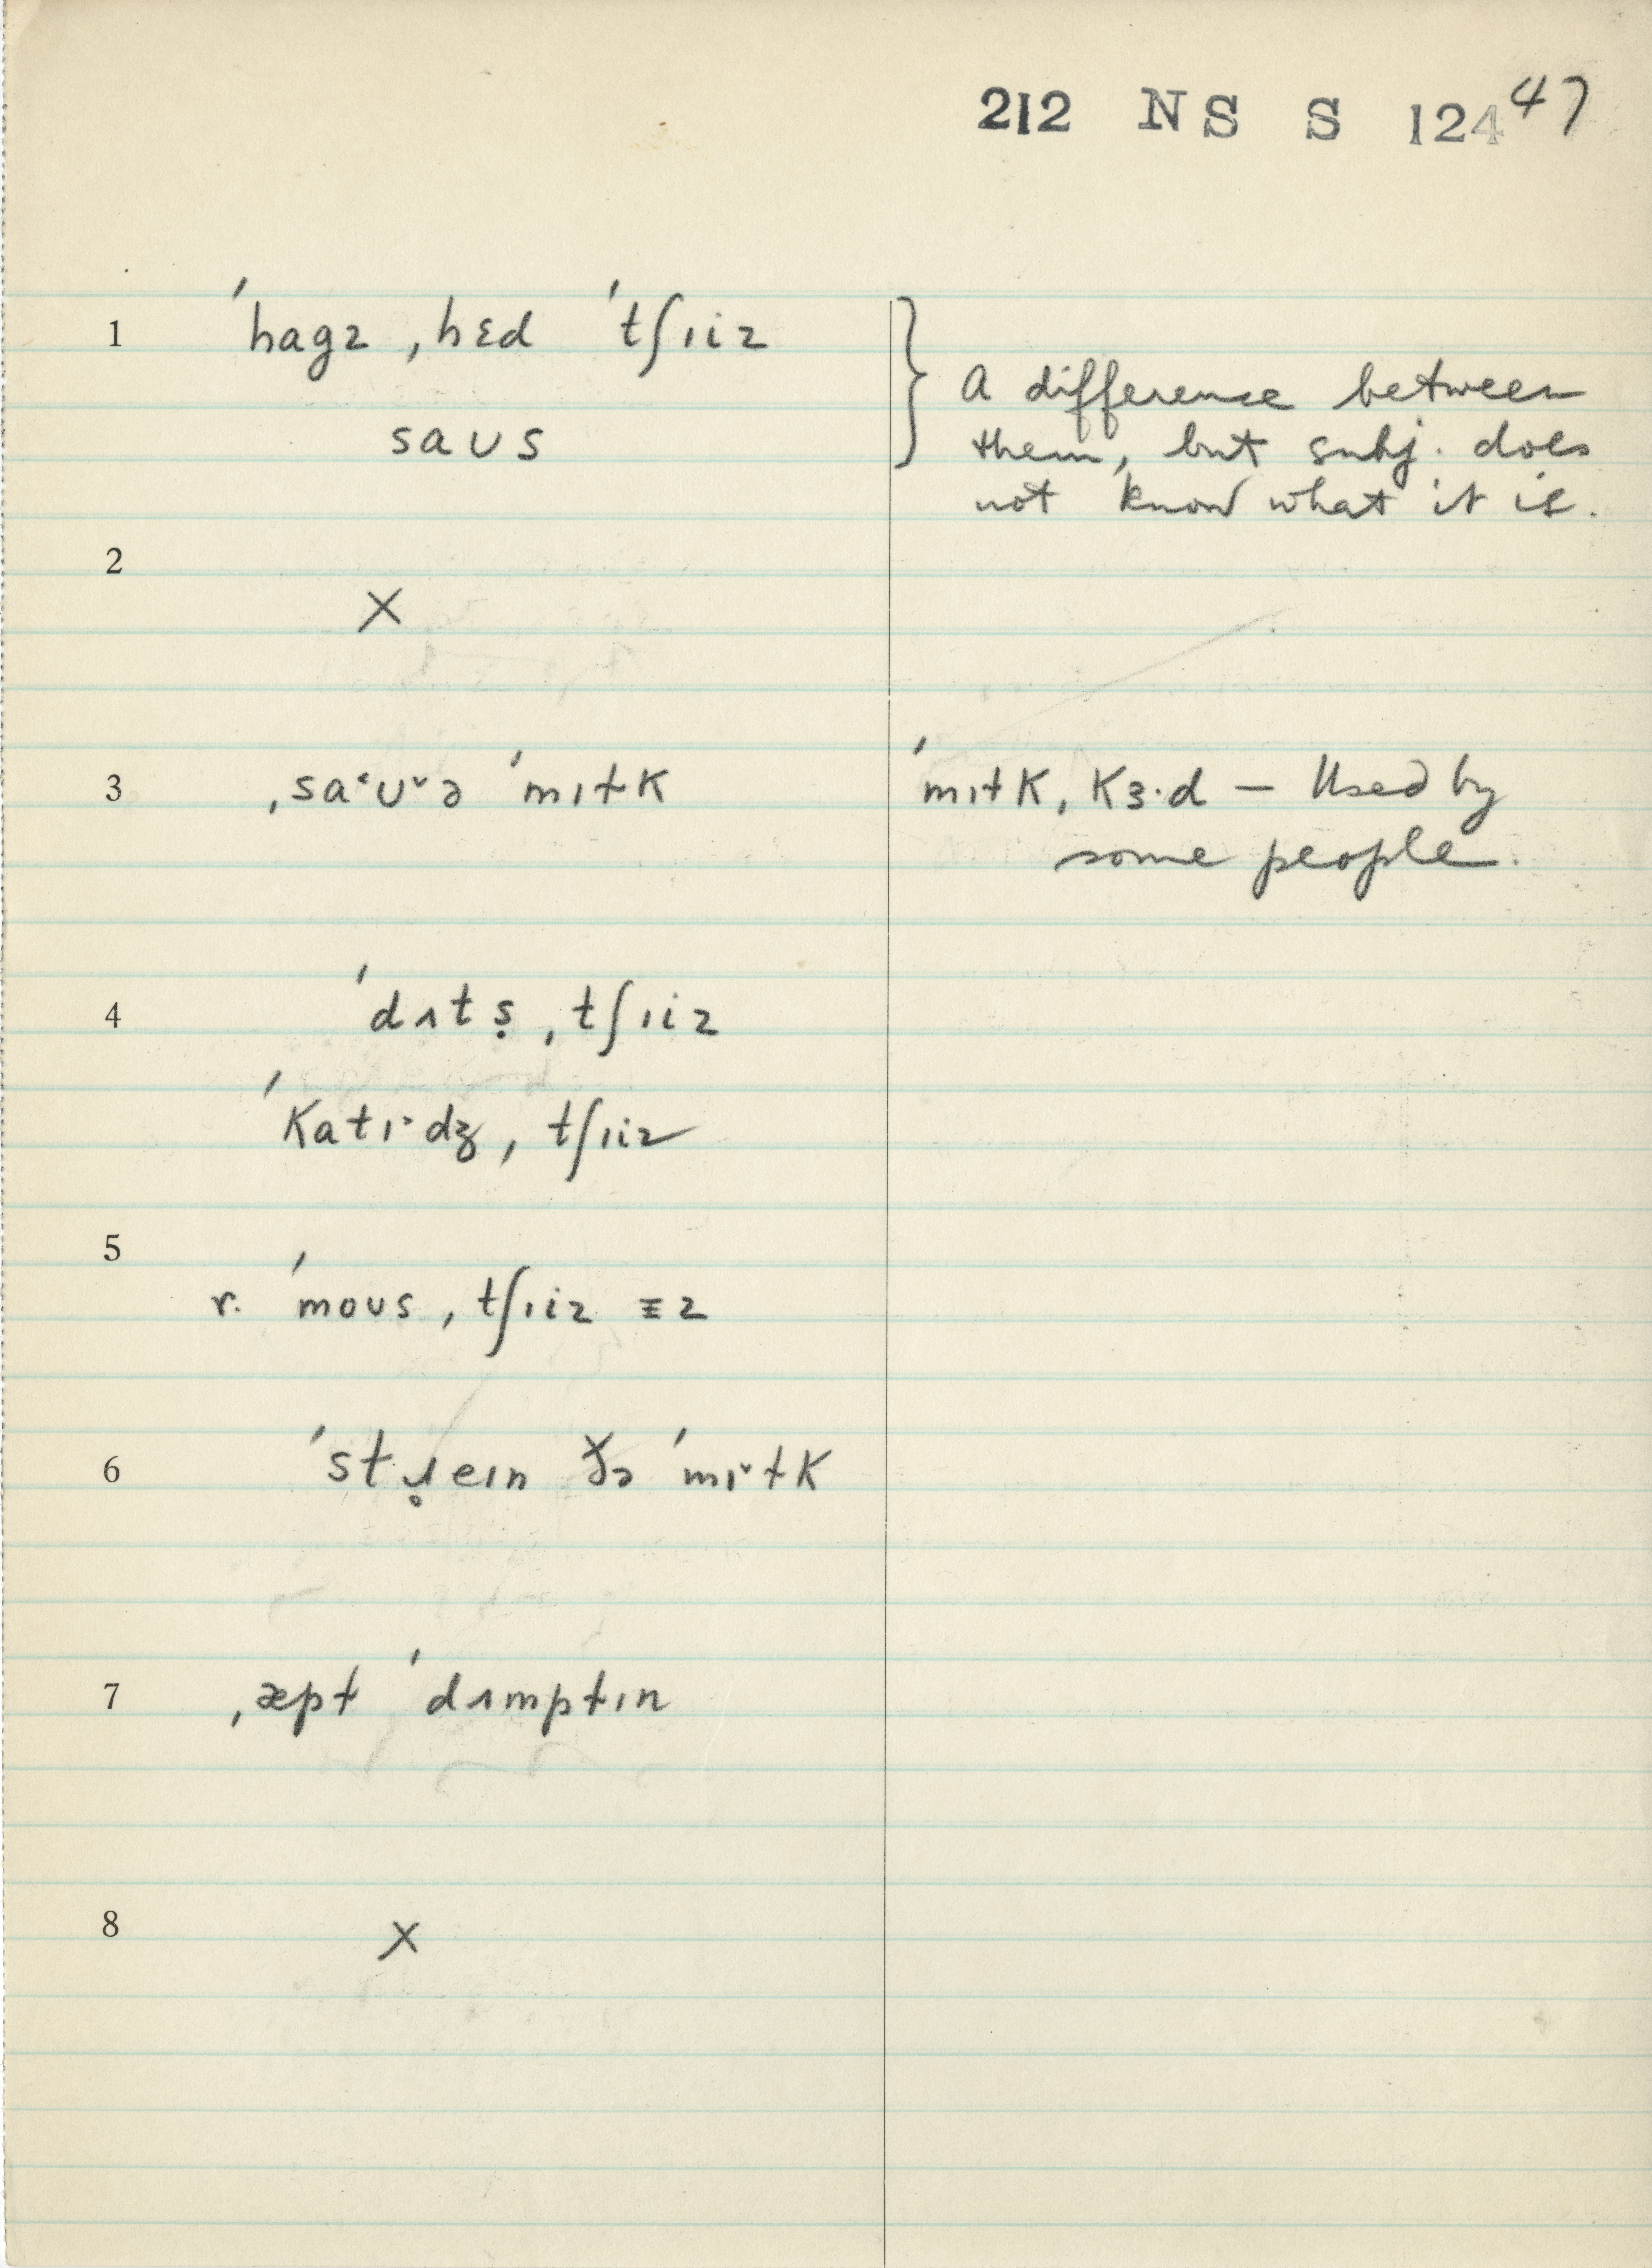 212 NS S 124 47
1 ˈhagz ˌhɛd ˈtʃɪiz
saʊs
} A difference between
them, but subj. does
not know what it is.
2
X
3 ˌsa˂ʊ˅ə ˈmɪɫk
ˈmɪɫk ˌkɜ·d – Used by
some people.
4 ˈdʌtṣ ˌtʃɪiz
ˈkatɪ˃dʒ ˌtʃɪiz
5
r. ˈmoʊs ˌtʃɪiz ɪz
6 ˈstɹ̥eɪn ðə ˈmɪ˅ɫk
7 ˌæpɫ ˈdʌmpɫɪn
8
X